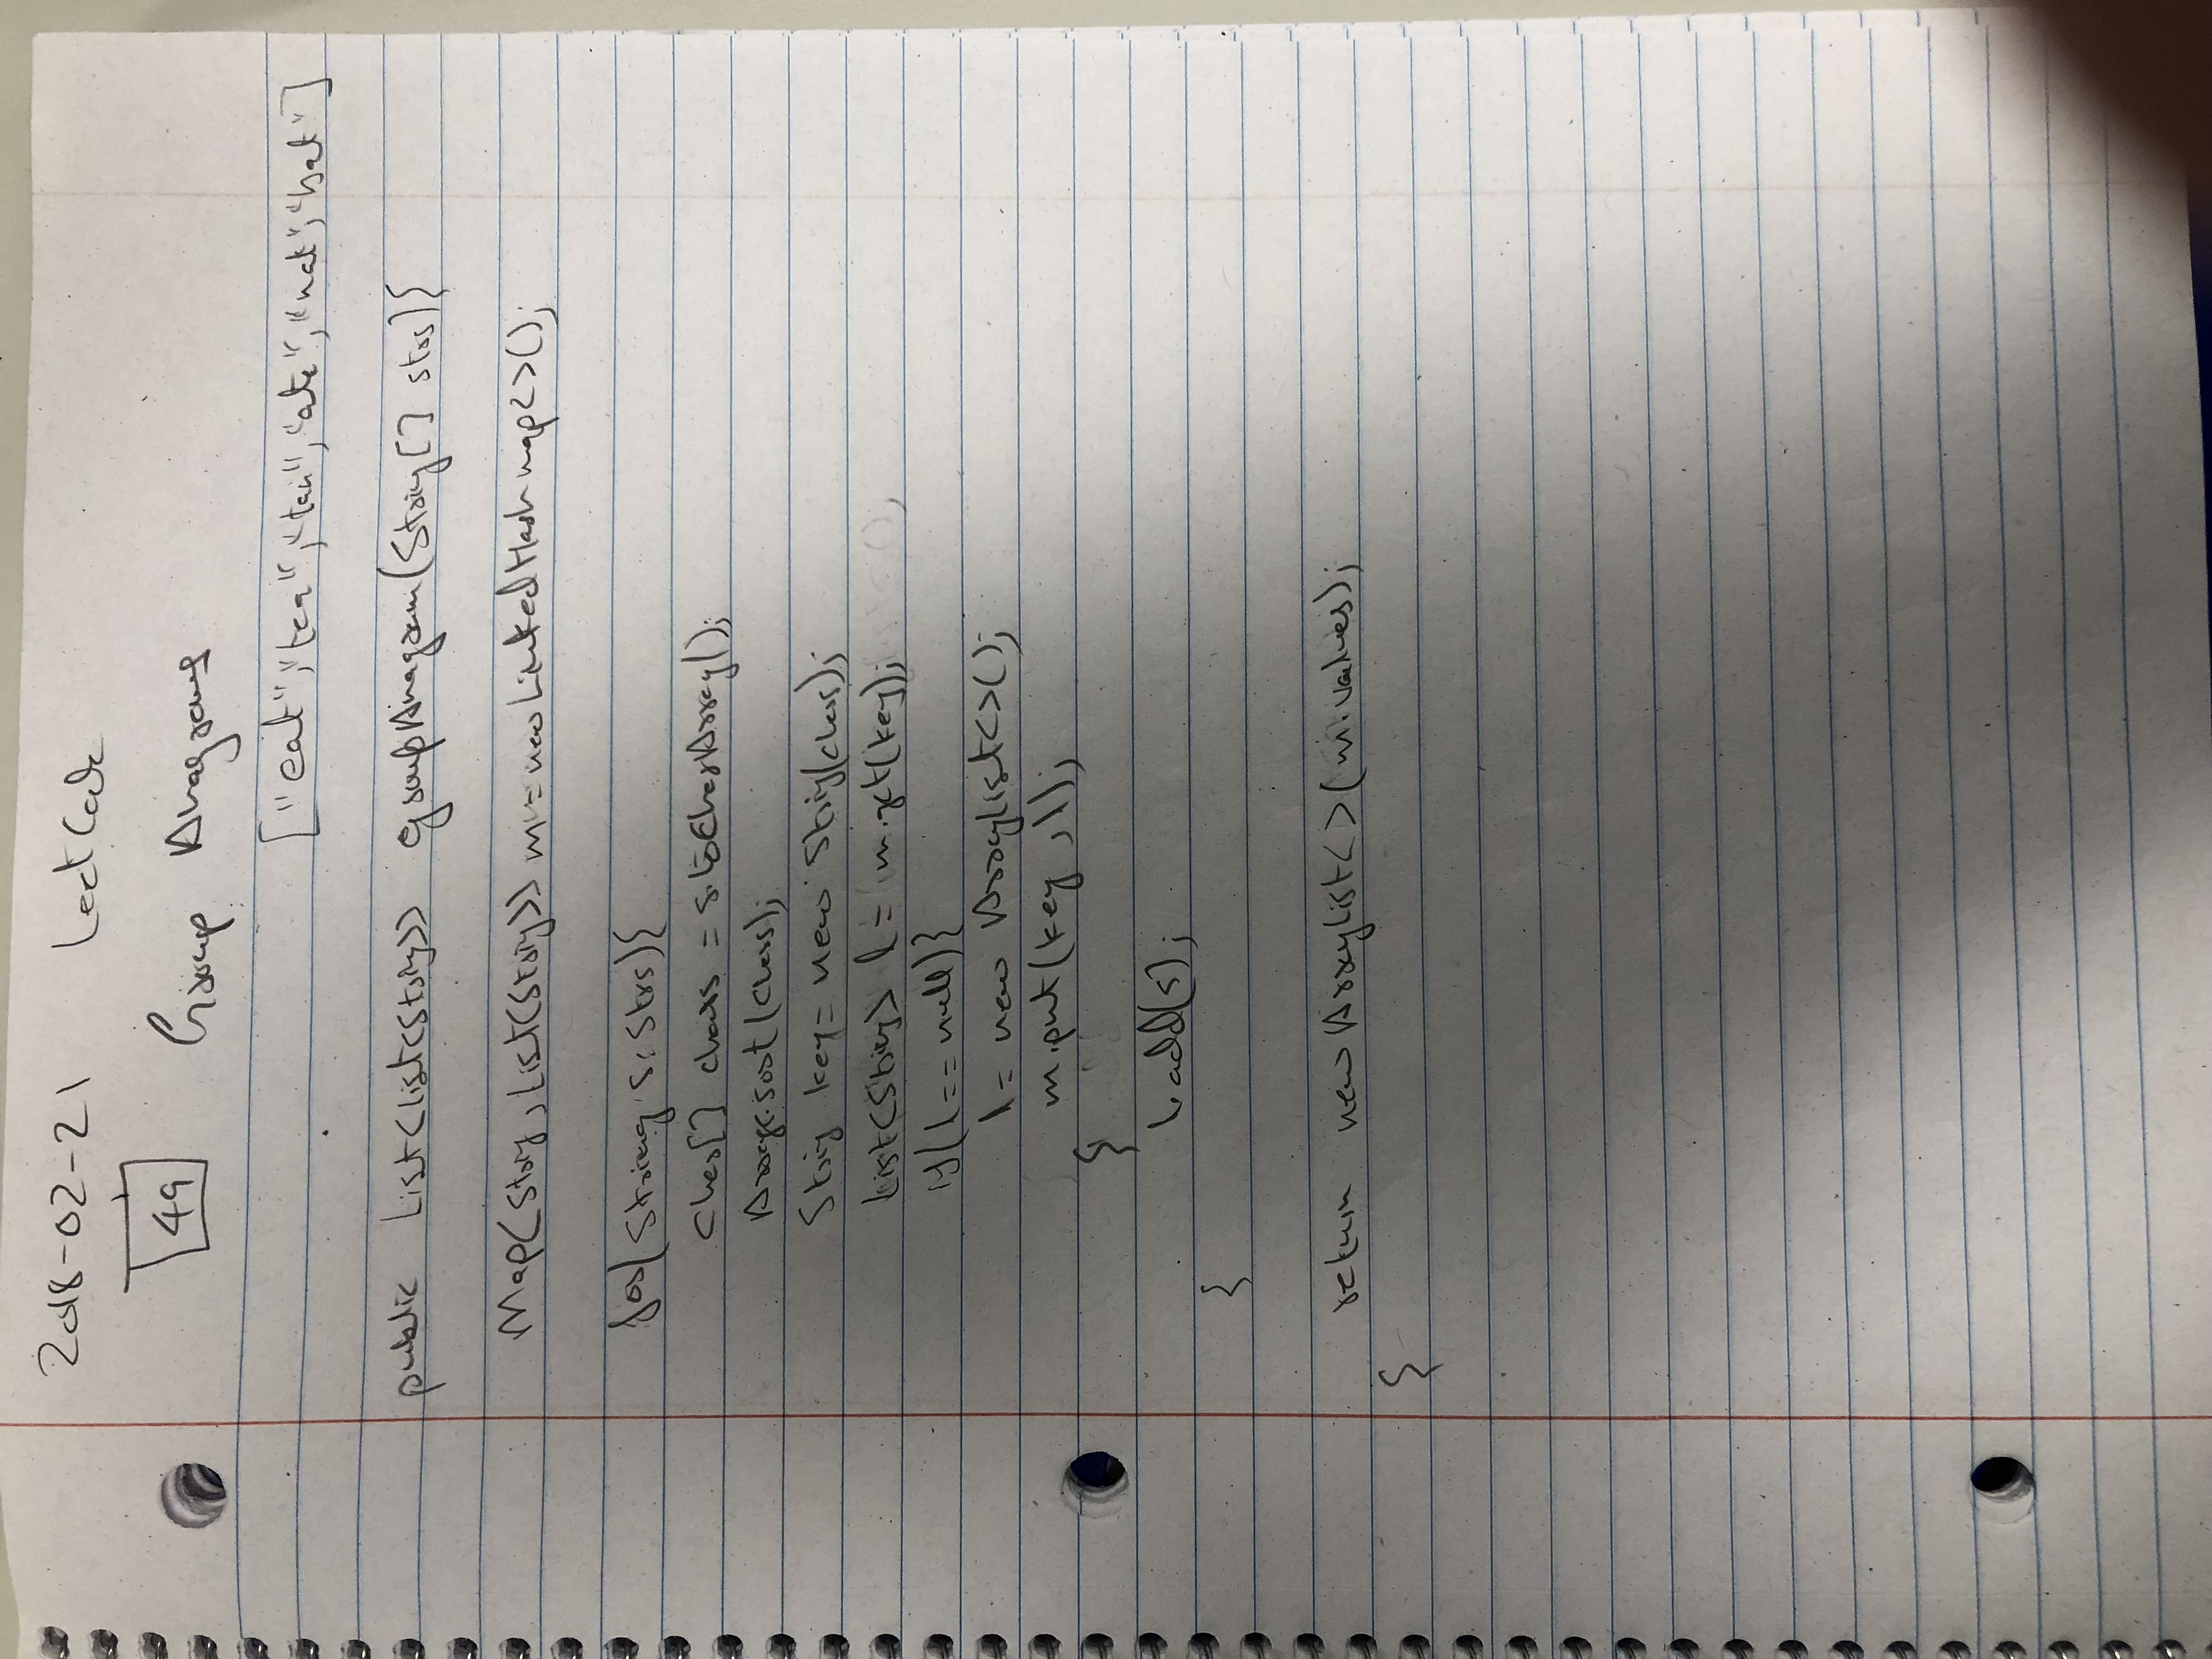 2018-02-21 LeetCode
49 Group Anagrams
["eat","tea","tan","ate","nat","bat"]
public List<List<String>> groupAnagram(String[] strs){
Map<String, List<String>> m = new LinkedHashmap<>();
for(String s: strs){
Char[] chars = s.toCharArray();
Arrays.sort(chars);
String key= new String(chars);
List<String> l = m.get(key);
if(l==null){
l = new Arraylist<>();
m.put(key, l);
}
l.add(s);
}
return new ArrayList<>(m.values);
}